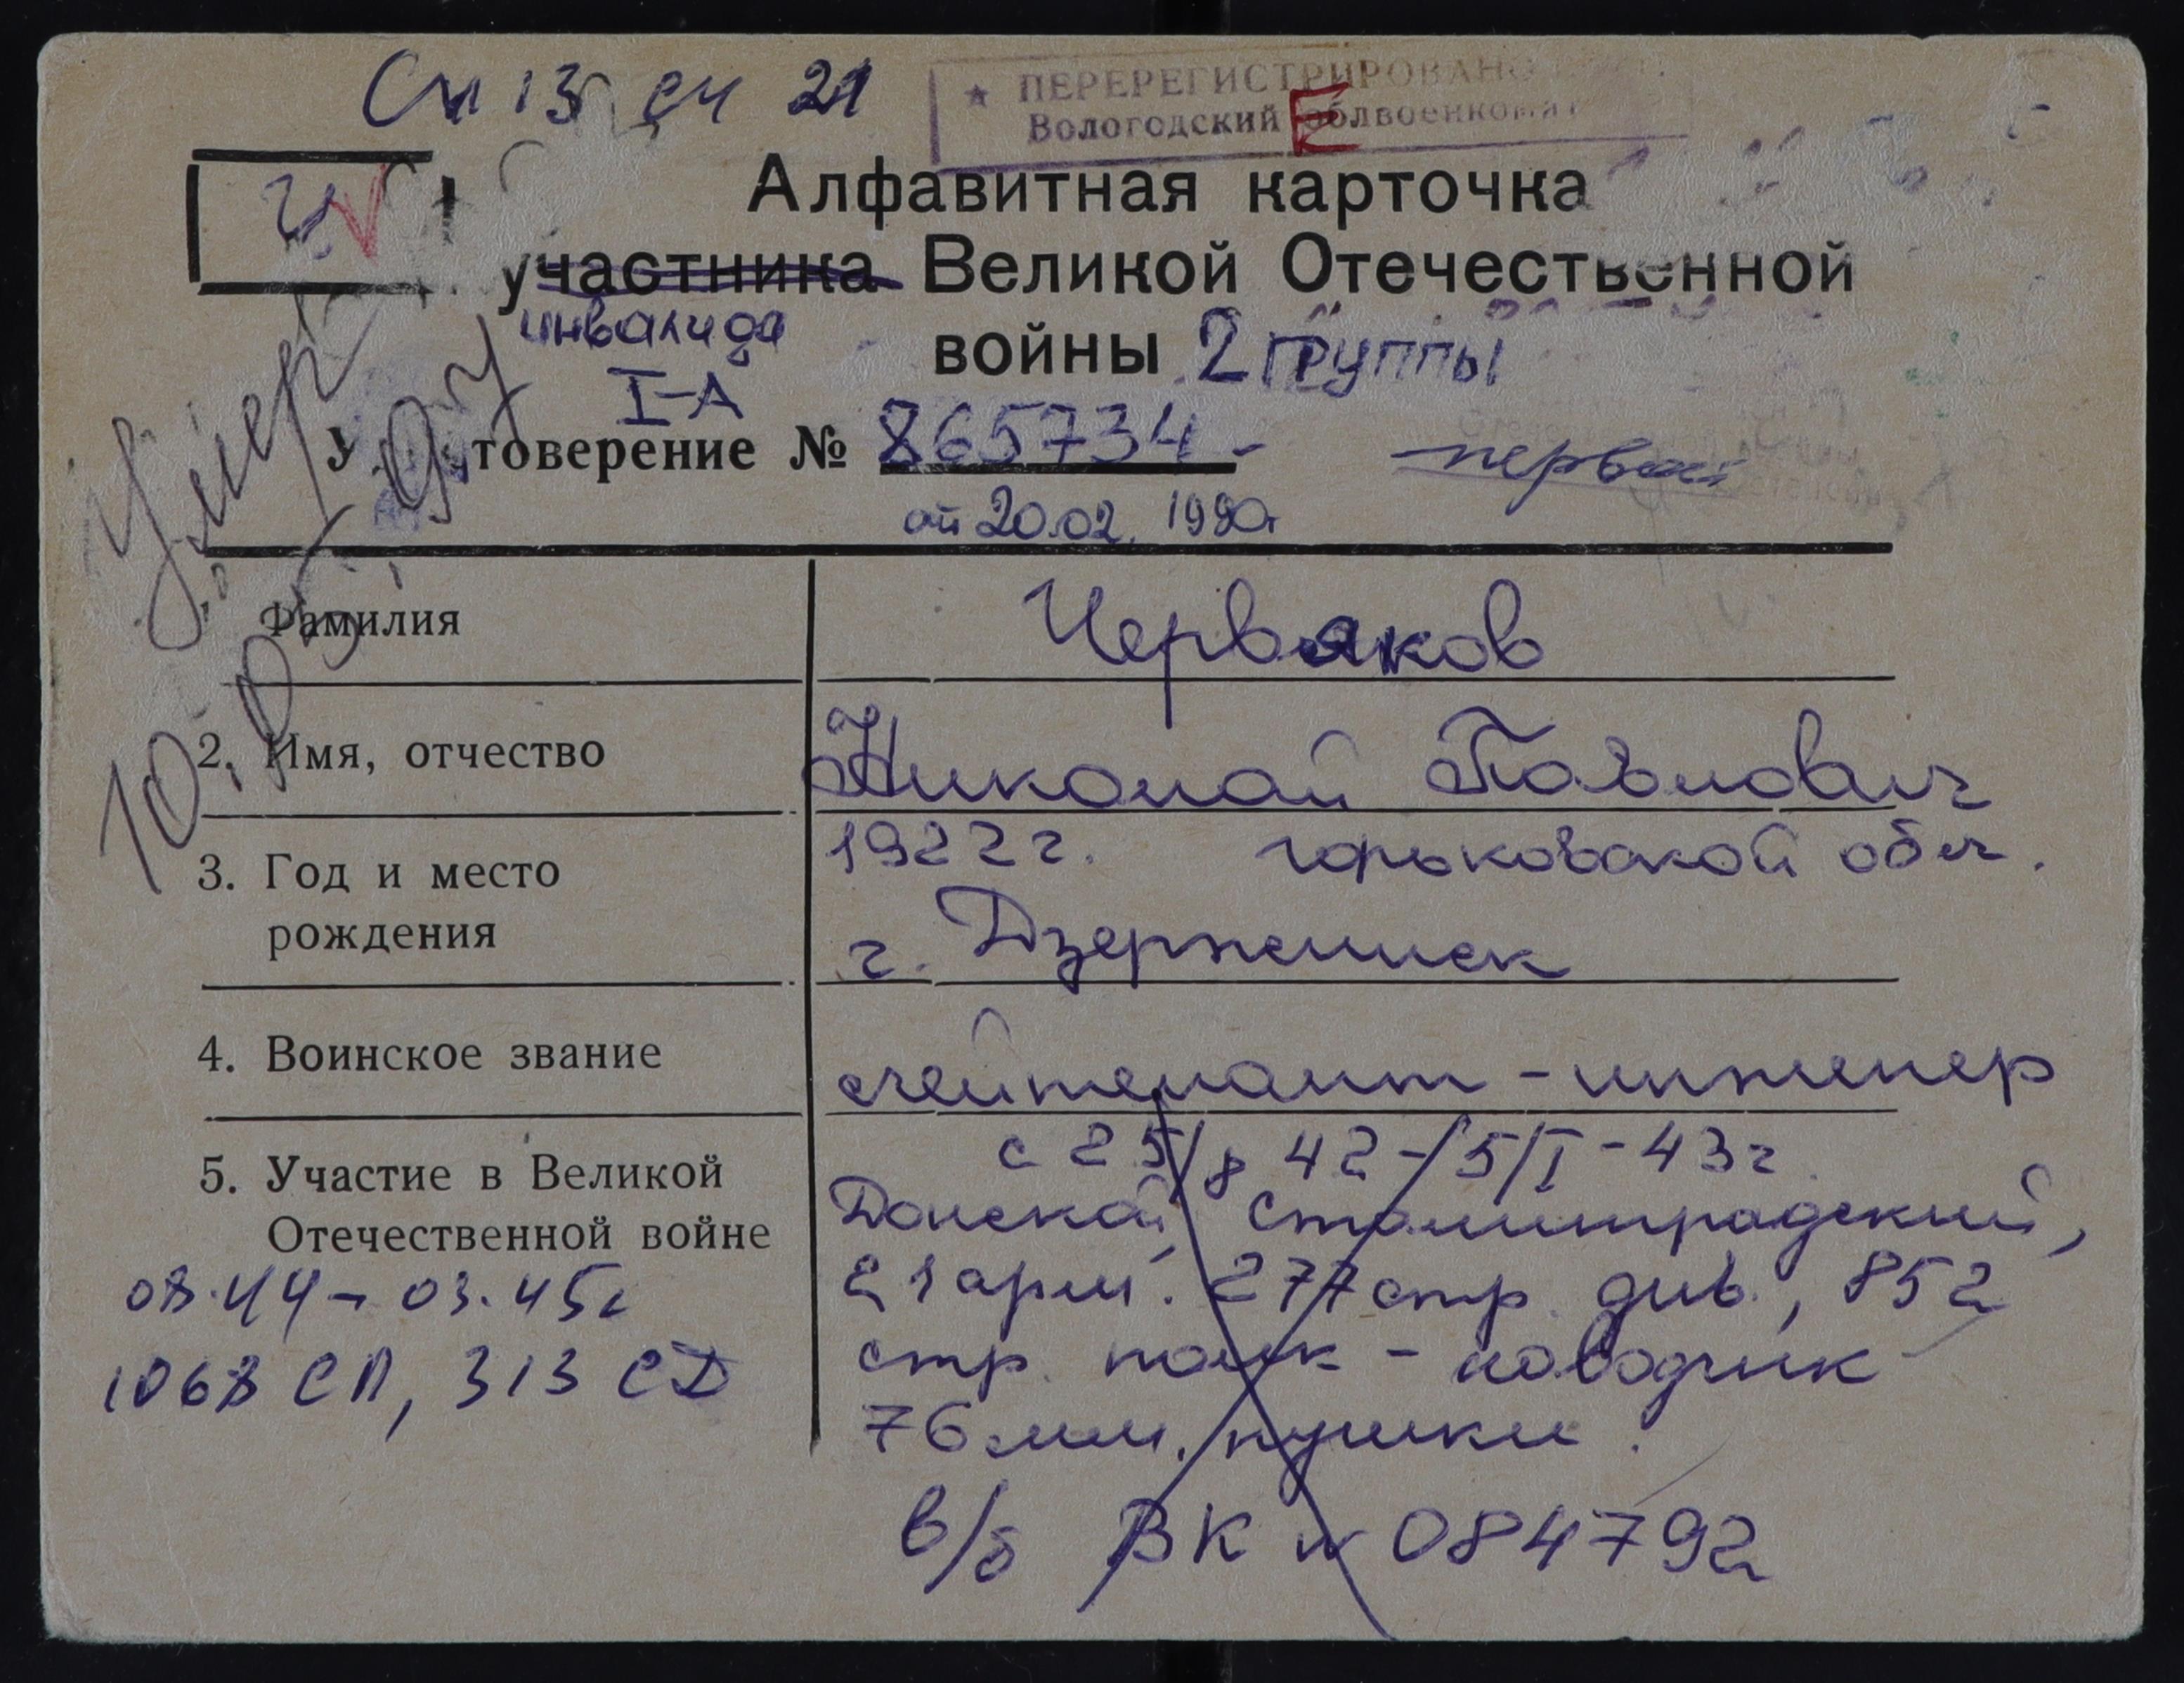 Сч 13 СЧ 21
★ ПЕРЕРЕГИСТРИРОВАНО
Вологодский облвоенкомат
Е
Алфавитная карточка
участника Великой Отечественной
инвалида
войны 2 группы
I-А
Удостоверение № 865734 -
первой
от 20.02. 1980г
Умер
Фамилия
Червяков
2. Имя, отчество
Николай Павлович
3. Год и место
рождения
1922 г. горьковской обл.
г. Дзержинск
4. Воинское звание
лейтенант - инженер
5. Участие в Великой
Отечественной войне
с 25/8 42 - 15/I - 43 г.
Донской, Сталинградский,
21 арм. 277 стр. див., 852
стр. полк - наводчик
76 мм. пушки.
08.44 - 03.45г
1068 СП, 313 СД
в/б ВК № 084792